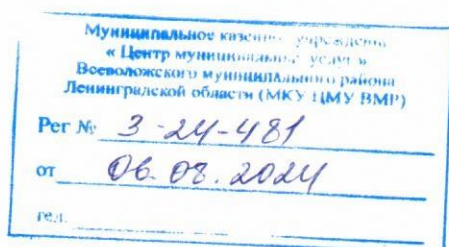 Муниципальное казенное учреждение
« Центр муниципальных услуг »
Всеволожского муниципального района
Ленинградской области (МКУ ЦМУ ВМР)
Рег № 3-24-481
от 06.02.2024
тел.